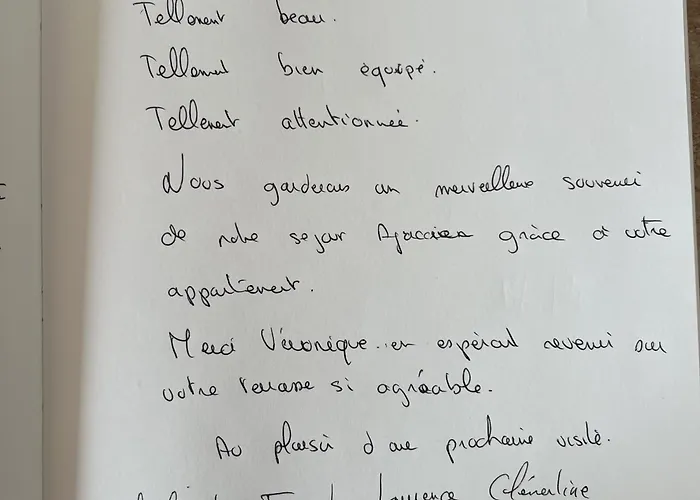 Tellement beau.
Tellement bien équipé.
Tellement attentionnée.
Nous garderons un merveilleux souvenir
de notre sejour Ajaccien grâce à votre
appartement.
Merci Véronique.. en espérant revenir sur
votre terrasse si agréable.
Au plaisir d'une prochaine visite.
Laurence